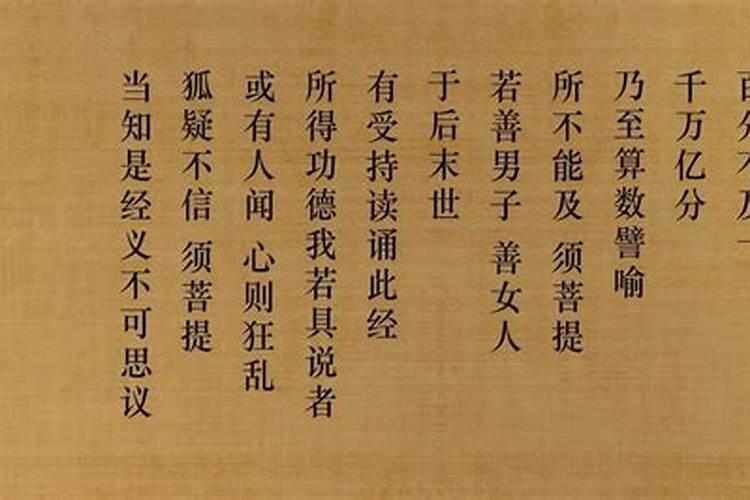 千万亿分
乃至算数譬喻
所不能及 须菩提
若善男子 善女人
于后末世
有受持读诵此经
所得功德我若具说者
或有人闻 心则狂乱
狐疑不信 须菩提
当知是经义不可思议